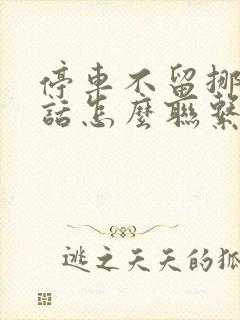 停車不留挪
話怎麼聯繫
逃之夭夭的狐